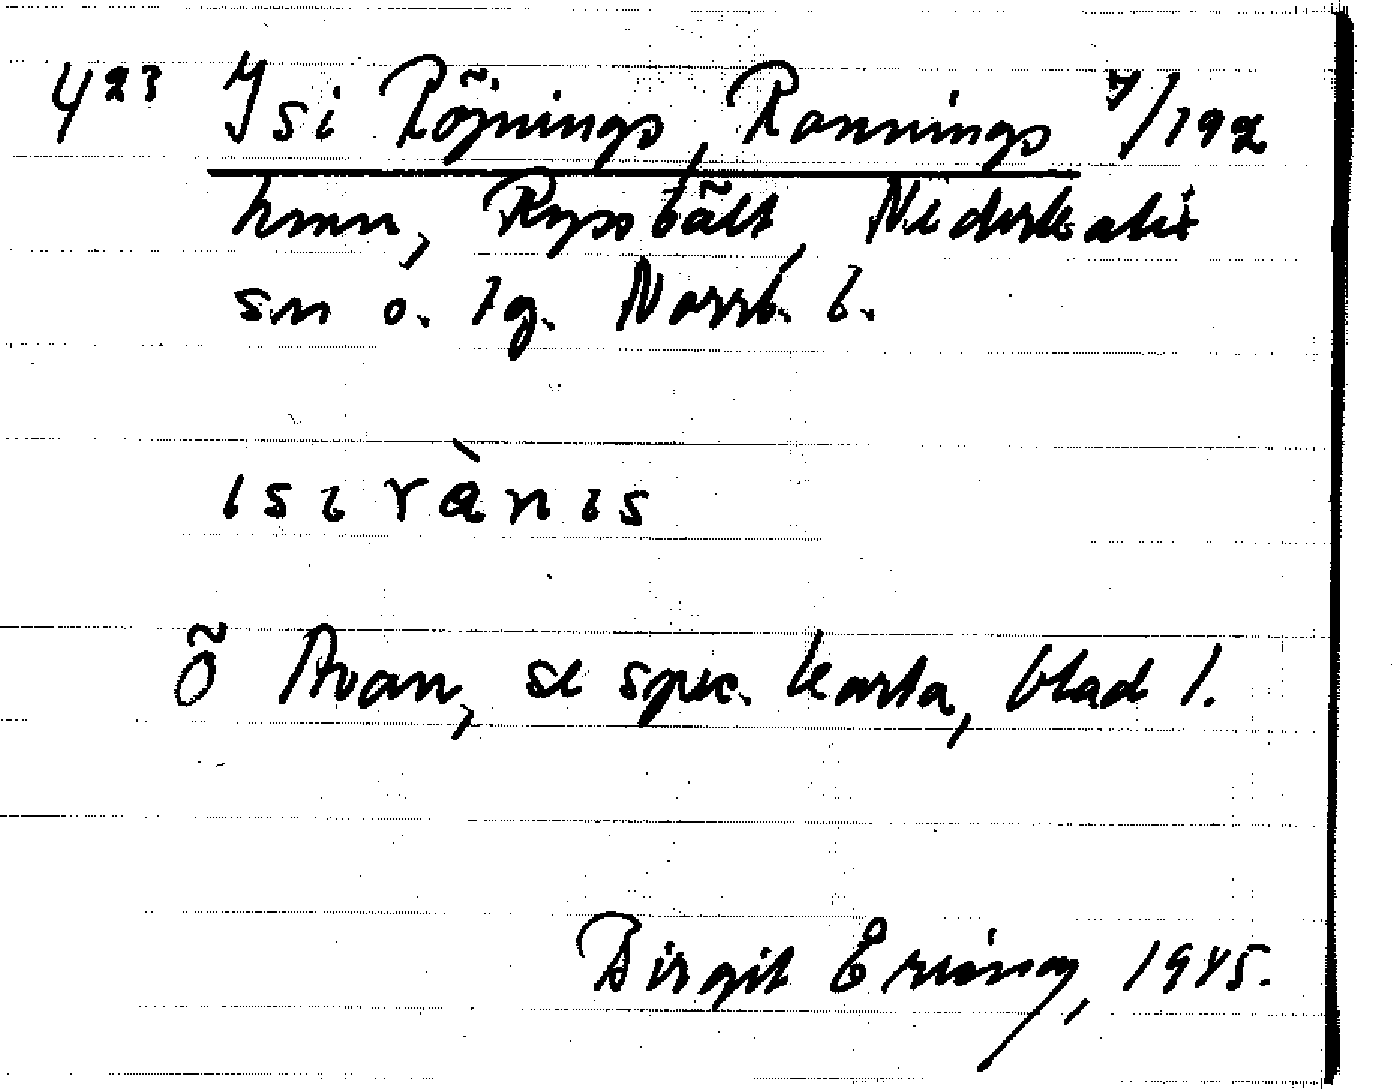 423 Isi Röjnings, Rannings 7/192
hmn, Ryssbält, Nederkalix
sn o. tg. Norrb. l.
ɩsɩ rànɩs
Ö Avan, se spec. karta, blad 1.
Birgit Ering, 1945.